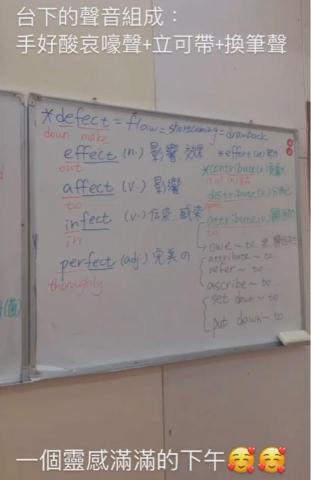 台下的聲音組成：
手好酸哀嚎聲+立可帶+換筆聲
*defect = flaw = shortcoming = drawback
down make
effect (n.) 影響 效果 *effort (n)
out
affect (v.) 影響
to
*contribute(v)
infect (v.) 感染
in
distribute(v)
attribute(v)
to
perfect (adj.) 完美的
thoroughly
owe~ to
attribute~ to
refer~ to
ascribe~ to
set down~ to
put down~ to
一個靈感滿滿的下午🥰🥰